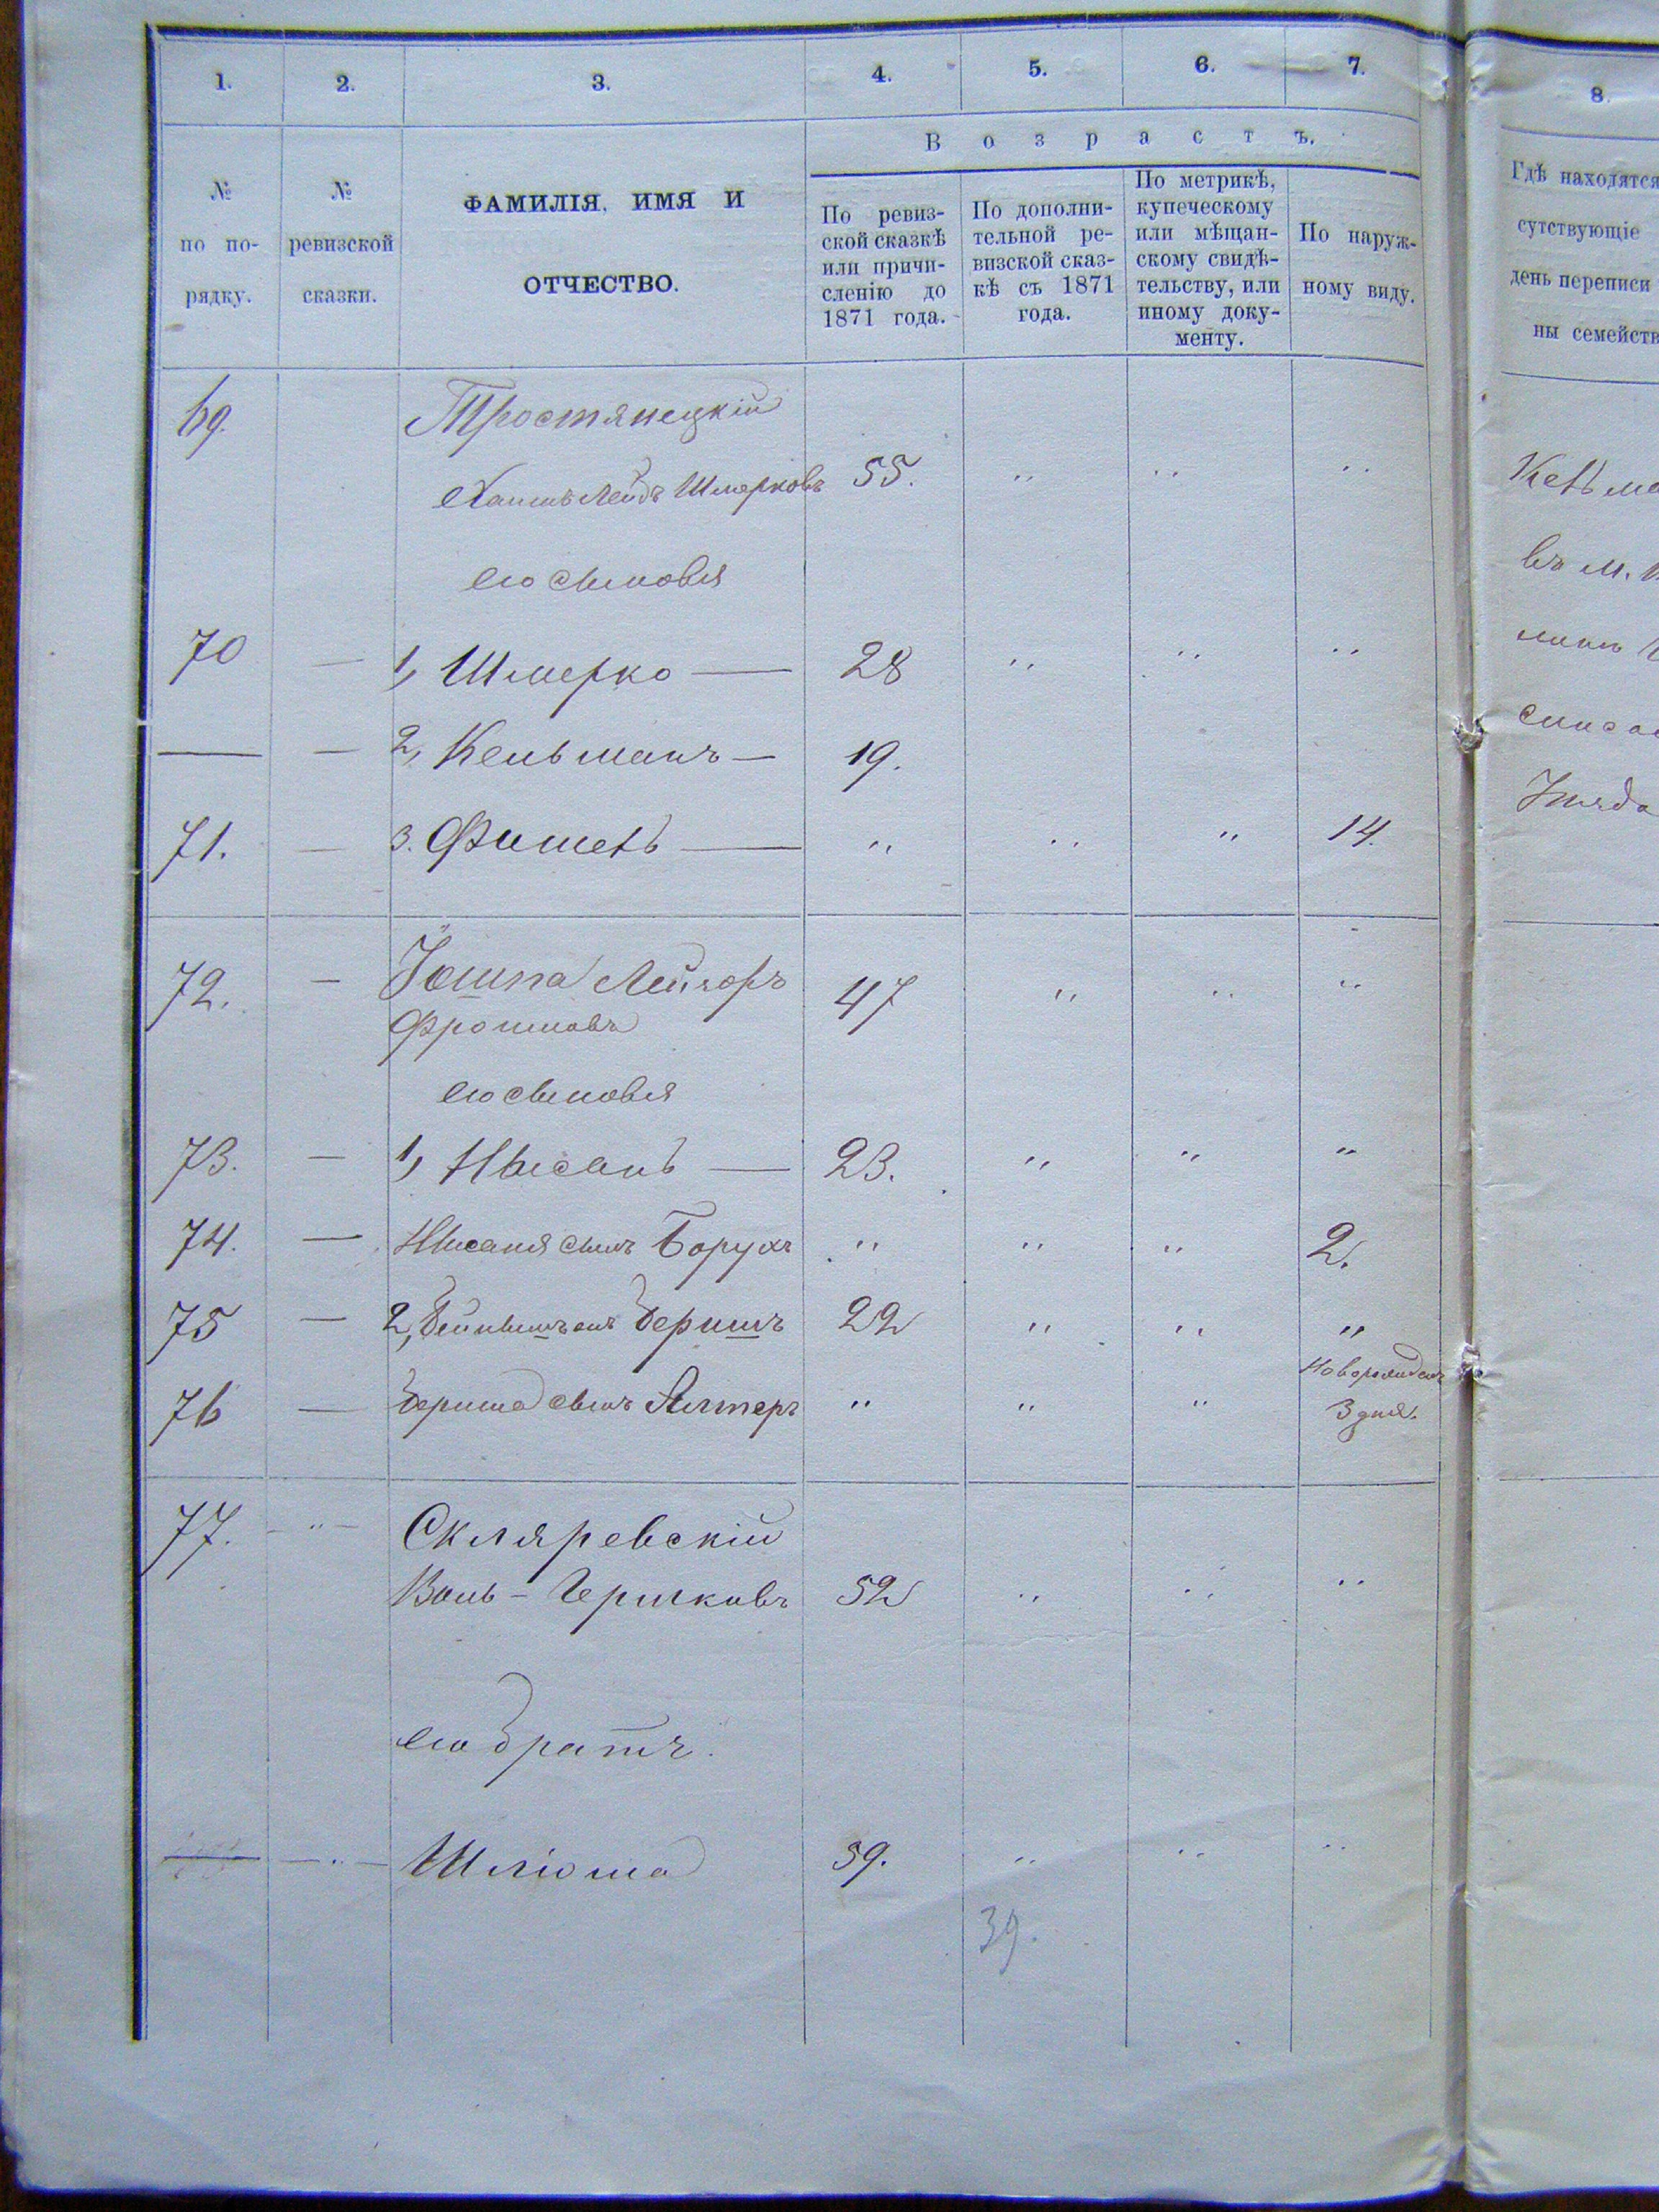 1. 2. 3. 4. 5. 6. 7. 8.
Возрастъ.
№ по по-рядку.
№ ревизской сказки.
ФАМИЛІЯ, ИМЯ И
ОТЧЕСТВО.
По ревиз-
ской сказкѣ
или причи-
сленію до
1871 года.
По дополни-
тельной ре-
визской сказ-
кѣ съ 1871
года.
По метрикѣ,
купеческому
или мѣщан-
скому свидѣ-
тельству, или
иному доку-
менту.
По наруж-
ному виду.
Гдѣ находятся
сутствующіе
день переписи
ны семейств
69. Тростянецкій
Хаимъ Лейбъ Шмерковъ 55. " " "
его сыновья
70 — 1, Шмерко — 28 " " "
— — 2, Кельманъ — 19.
71. — 3. Фишель — " " " 14.
72. — Іошпа Лейзоръ 47 " " "
Фроимовъ
его сыновья
73. — 1, Нысань — 23. " " "
74. — Нысаня сынъ Борухъ " " " 2.
75 — 2, Бериш 22 " " "
76 — Бериша сынъ Алтеръ " " " Новорожденъ
3 дня.
77. — " — Скляревскій
Воль - Гершковъ 52 " " "
его братъ.
— — " — Шліома 39. " " "
39.
Кельма
въ м.